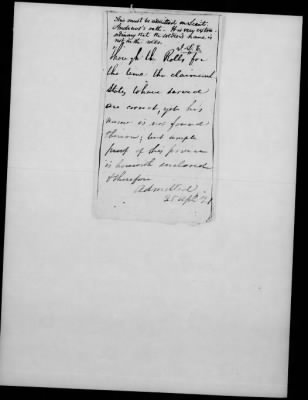 This must be admitted, on Lieut.
Andrew's oath. It is very extra-
ordinary that the soldier's name is
not in the rolls.
Though the Rolls for
the time the claimant
states to have served
are correct, yet his
name is not found
thereon; but ample
proof of his service
is herewith enclosed
& therefore
Admitted
25 Apl.